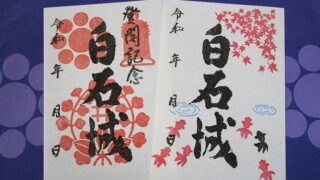 登閣記念
白石城
令和 年 月 日
白石城
令和 年 月 日